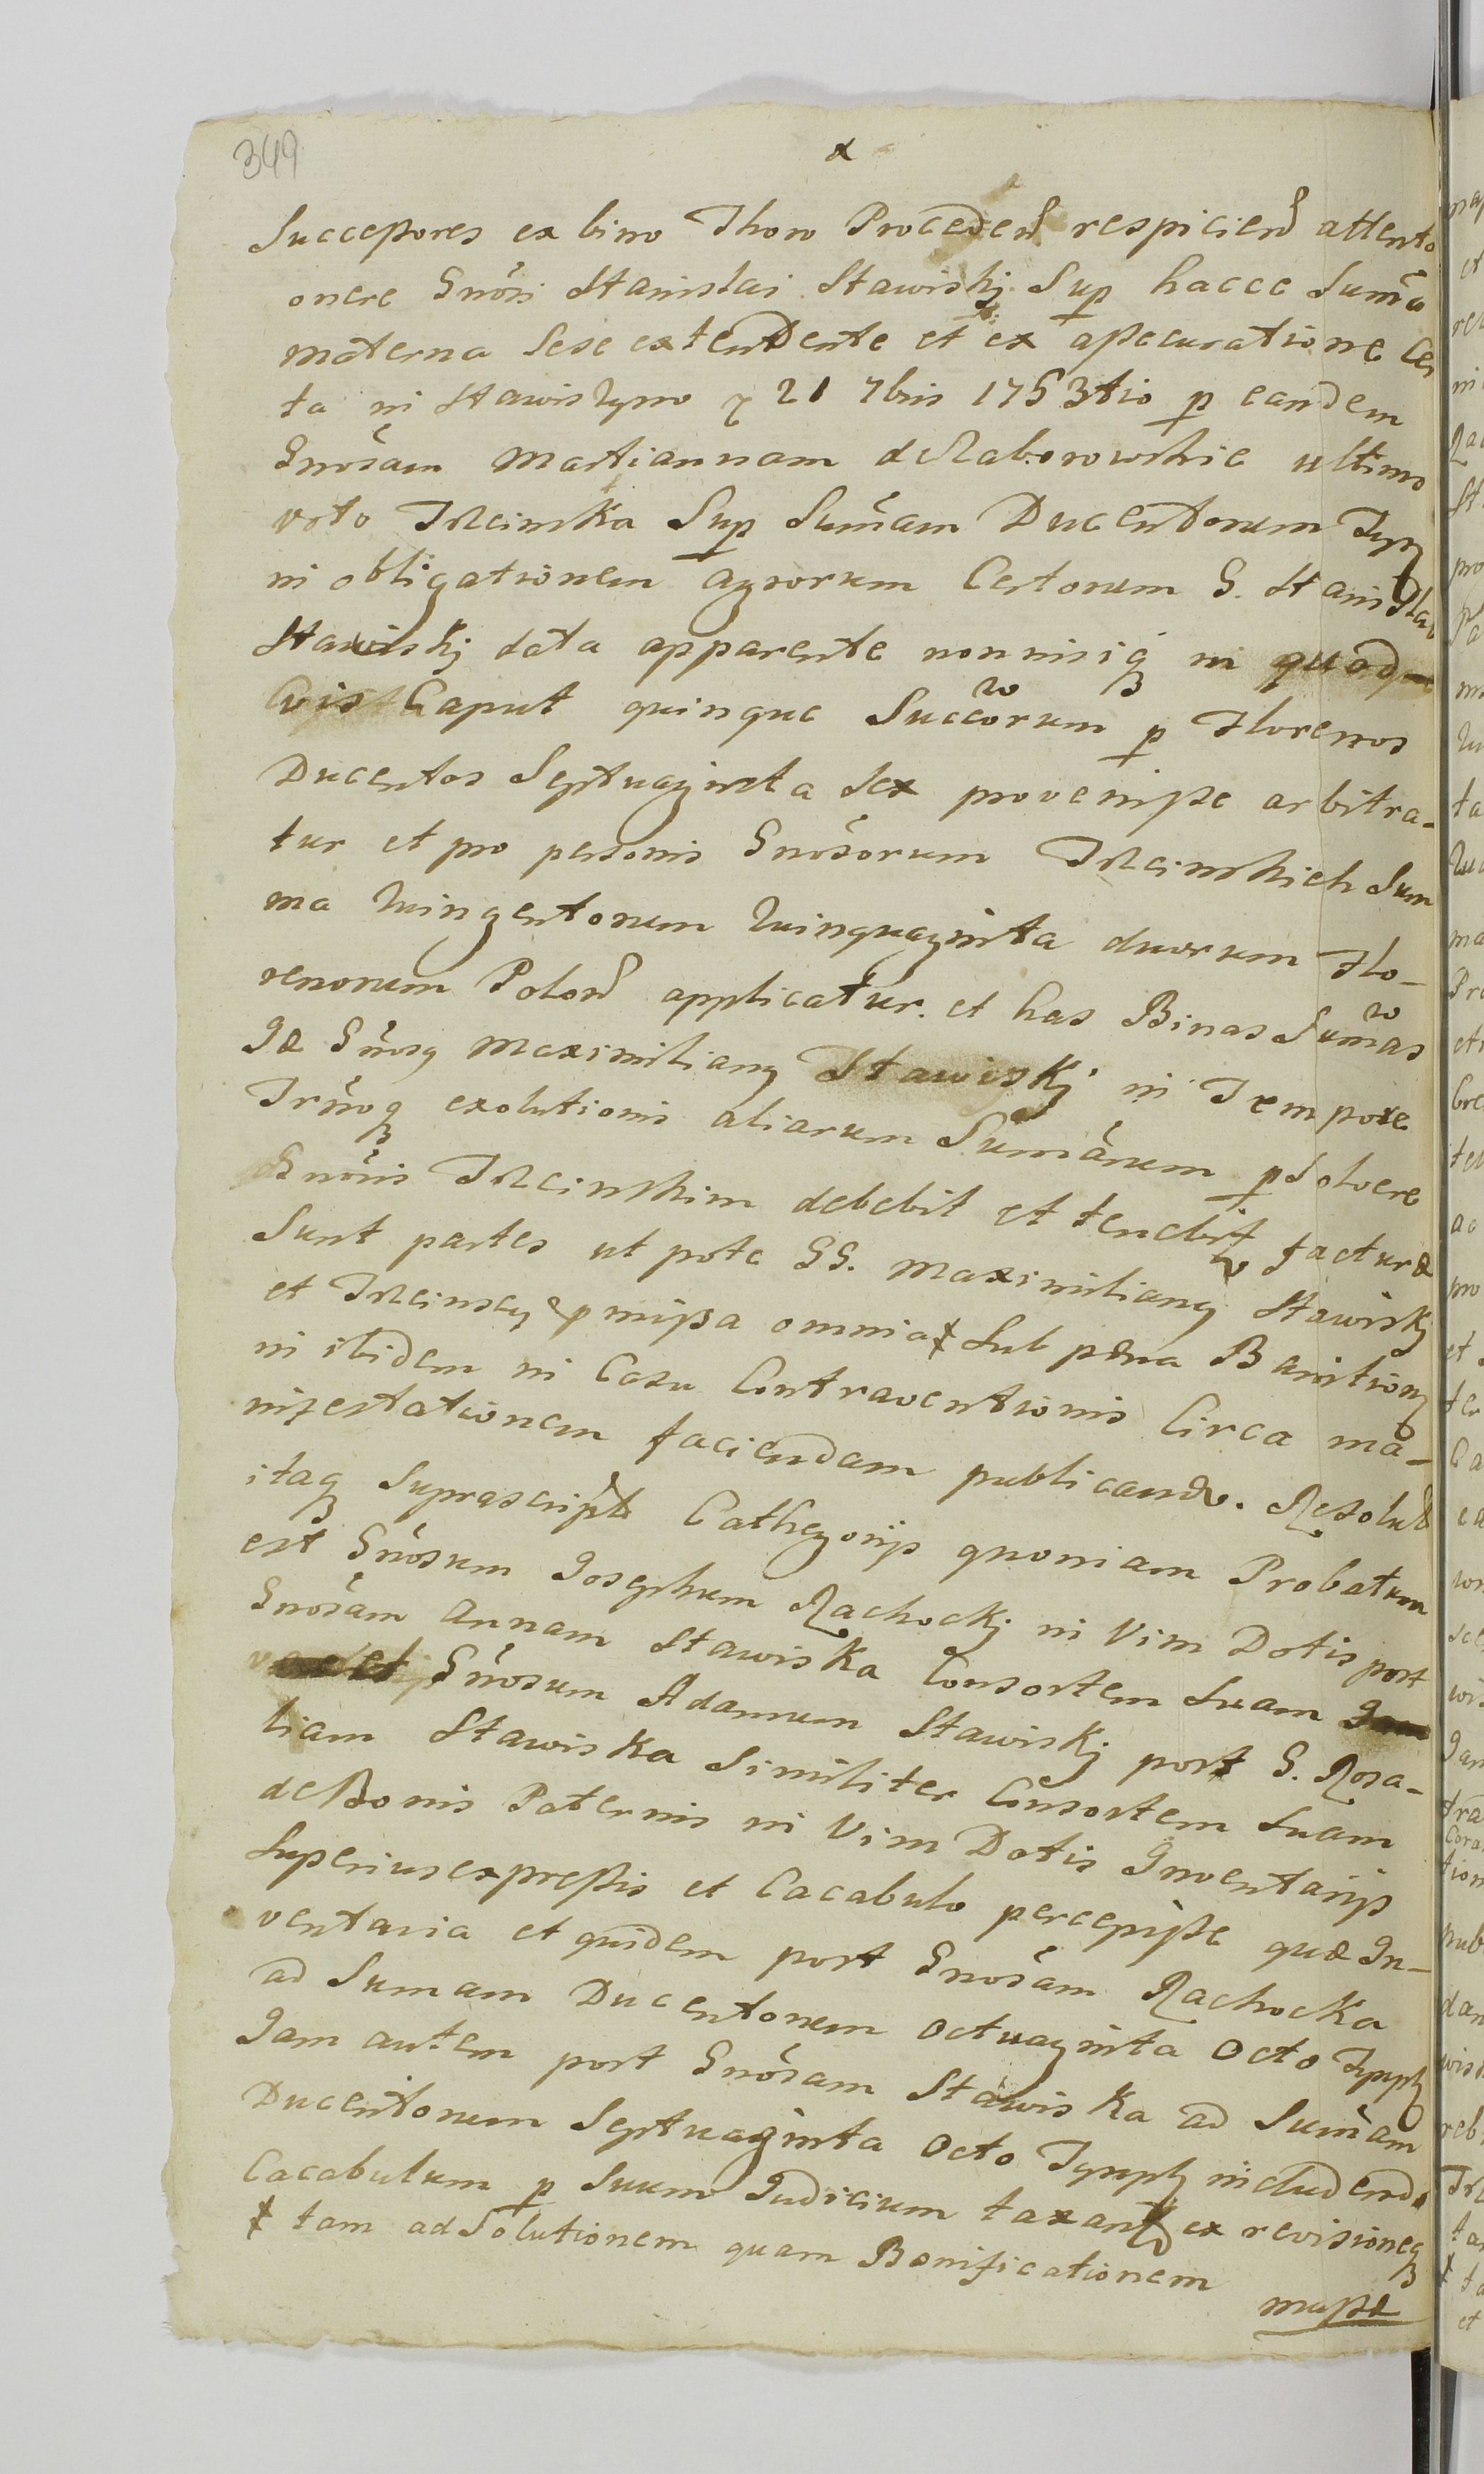 349
x
Successores ex bino Thoro Proceden respicien attento
onere Gnosi Stanislai Stawiskj Sup hacce Suma
materna Sese extendente et ex assecuratione
ta in Stawiszyno 21 7bris 1753tio p eandem
Gnosam Martiannam de Zaborowskie ultimo
voto Trzcinska Sup Sumam Ducentorum Tynf
in obligationem agrorum Certorum G. Stanislao
Stawiskj data apparente non nisiq in quod-
vis Caput quinque Succorum p Florenos
Ducentos Septuaginta Sex provenisse arbitra-
tur et pro personis Gnosorum Trzcinskich Sum
ma Quingentorum Quinquaginta duorum Flo-
renorum Polon applicatur. et has Binas Sumas
Gnosq Maximilianq Stawiskj in Tempore
Trnoq exolutionis aliarum Sumarum p Solvere
Gnosis Trzcinskim debebit et tenebit factura
Sunt partes ut pote GG. Maximilianq Stawiskj
et Trzcinscy pmissa omnia ŧ Sub pæna Banitionq
in ibidem in Casu Contraventionis Circa ma-
nifestationem faciendam publicandæ. Resolut
itaq Suprascript Cathegorijs quoniam Probatum
est Gnosum Josephum Rachockj in Vim Dotis post
Gnosam Annam Stawiska Consortem Suam
Gnosum Adamum Stawiskj post G. Rosa-
liam Stawiska Similiter Consortem Suam
de Bonis Paternis in Vim Dotis Inventarijs
Superius expressis et Cacabulo percepisse quæ In-
ventaria et quidem post Gnosam Rachocka
ad Sumam Ducentorum Octuaginta Octo Tynph
Jam autem post Gnosam Stawiska ad Sumam
Ducentorum Septuaginta Octo Tynph includendo
Cacabulum p Suum Judicium taxant ex revisioneq
ŧ tam ad Solutionem quam Bonificationem
massæ